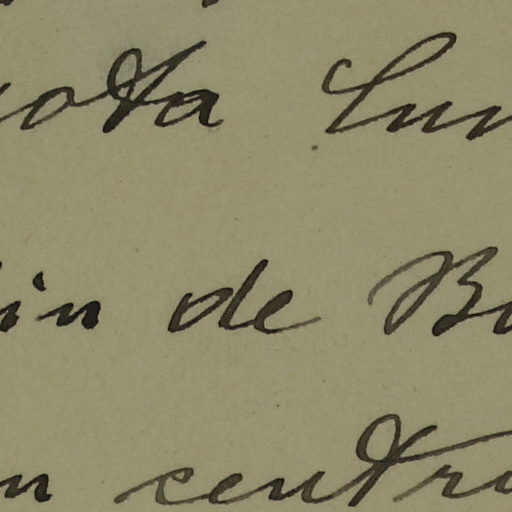 ota Lun
in de Bo
n centro